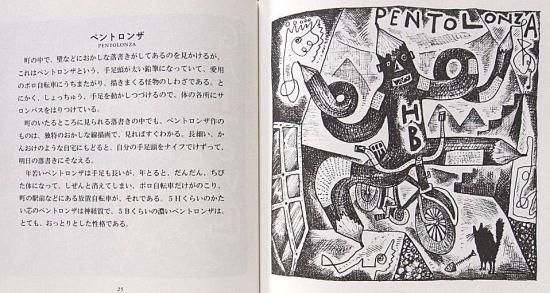 ペントロンザ
PENTOLONZA
町の中で、壁などにおかしな落書きがしてあるのを見かけるが、
これはペントロンザという、手足頭が太い鉛筆になっていて、愛用
のボロ自転車にうちまたがり、描きまくる怪物のしわざである。と
にかく、しょっちゅう、手足を動かしつづけるので、体の各所にサ
ロンパスをはりつけている。
町のいたるところに見られる落書きの中でも、ペントロンザ作
のものは、独特のおかしな線描画で、見ればすぐわかる。長細い、か
んおけのような自宅にもどると、自分の手足頭をナイフでけずって、
明日の落書きにそなえる。
年若いペントロンザは手足も長いが、年とると、だんだん、ちび
た体になって、しぜんと消えてしまい、ボロ自転車だけがのこり、
町の駅前などにある放置自転車が、それである。5Hくらいのかた
い芯のペントロンザは神経質で、5Bくらいの濃いペントロンザは、
とても、おっとりとした性格である。
25
PENTOLONZA
HB